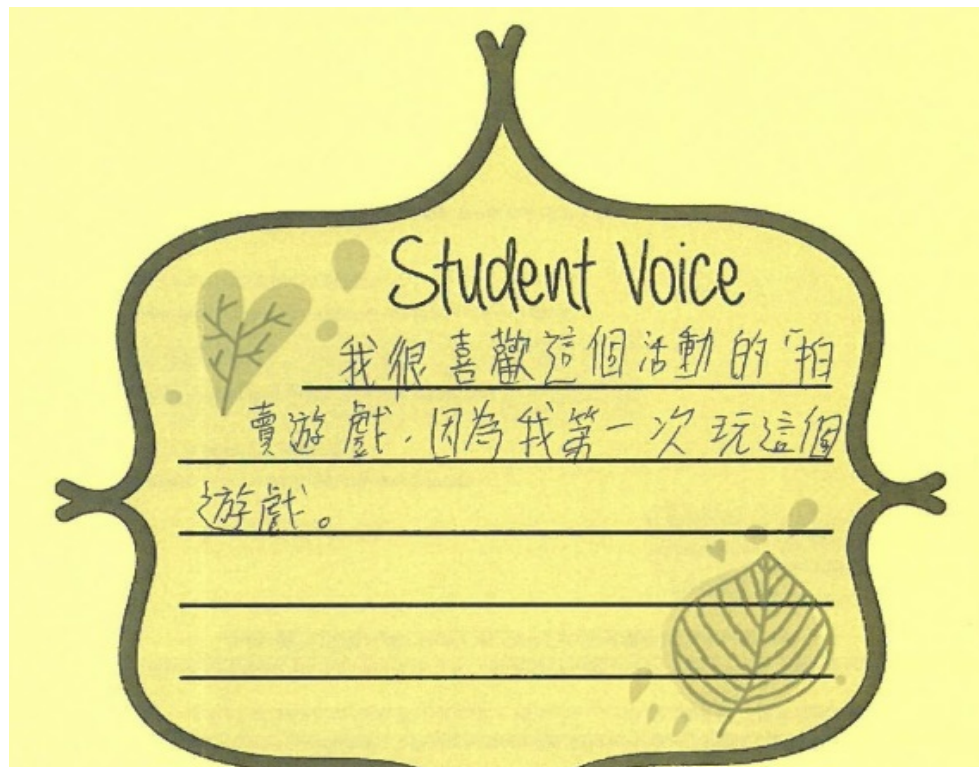 Student Voice
我很喜歡這個活動的“拍
賣遊戲,因為我第一次玩這個
遊戲。